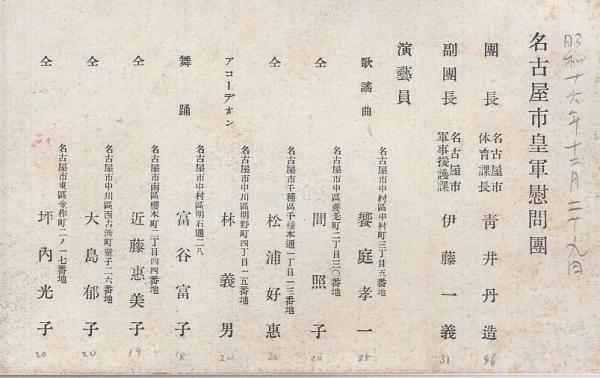 昭和十六年十二月二十九日
名古屋市皇軍慰問團
團長 名古屋市体育課長 靑井丹造 46
副團長 名古屋市軍事援護課 伊藤一義 31
演藝員
名古屋市中村區中村町三丁目五番地
歌謠曲 饗庭孝一 25
名古屋市中區養老町二丁目三〇番地
仝 間照子 20
名古屋市千種區千種本通一丁目一三番地
仝 松浦好惠 20
名古屋市中川區明野町四丁目一五番地
アコーデオン 林義男 20
名古屋市中村區明石通二八
舞踊 富谷富子 18
名古屋市南區櫻本町二丁目四四番地
仝 近藤惠美子 19
名古屋市中川區西古渡町 二六番地
仝 大島郁子 20
名古屋市東區 町二ノ一七番地
仝 坪內光子 20